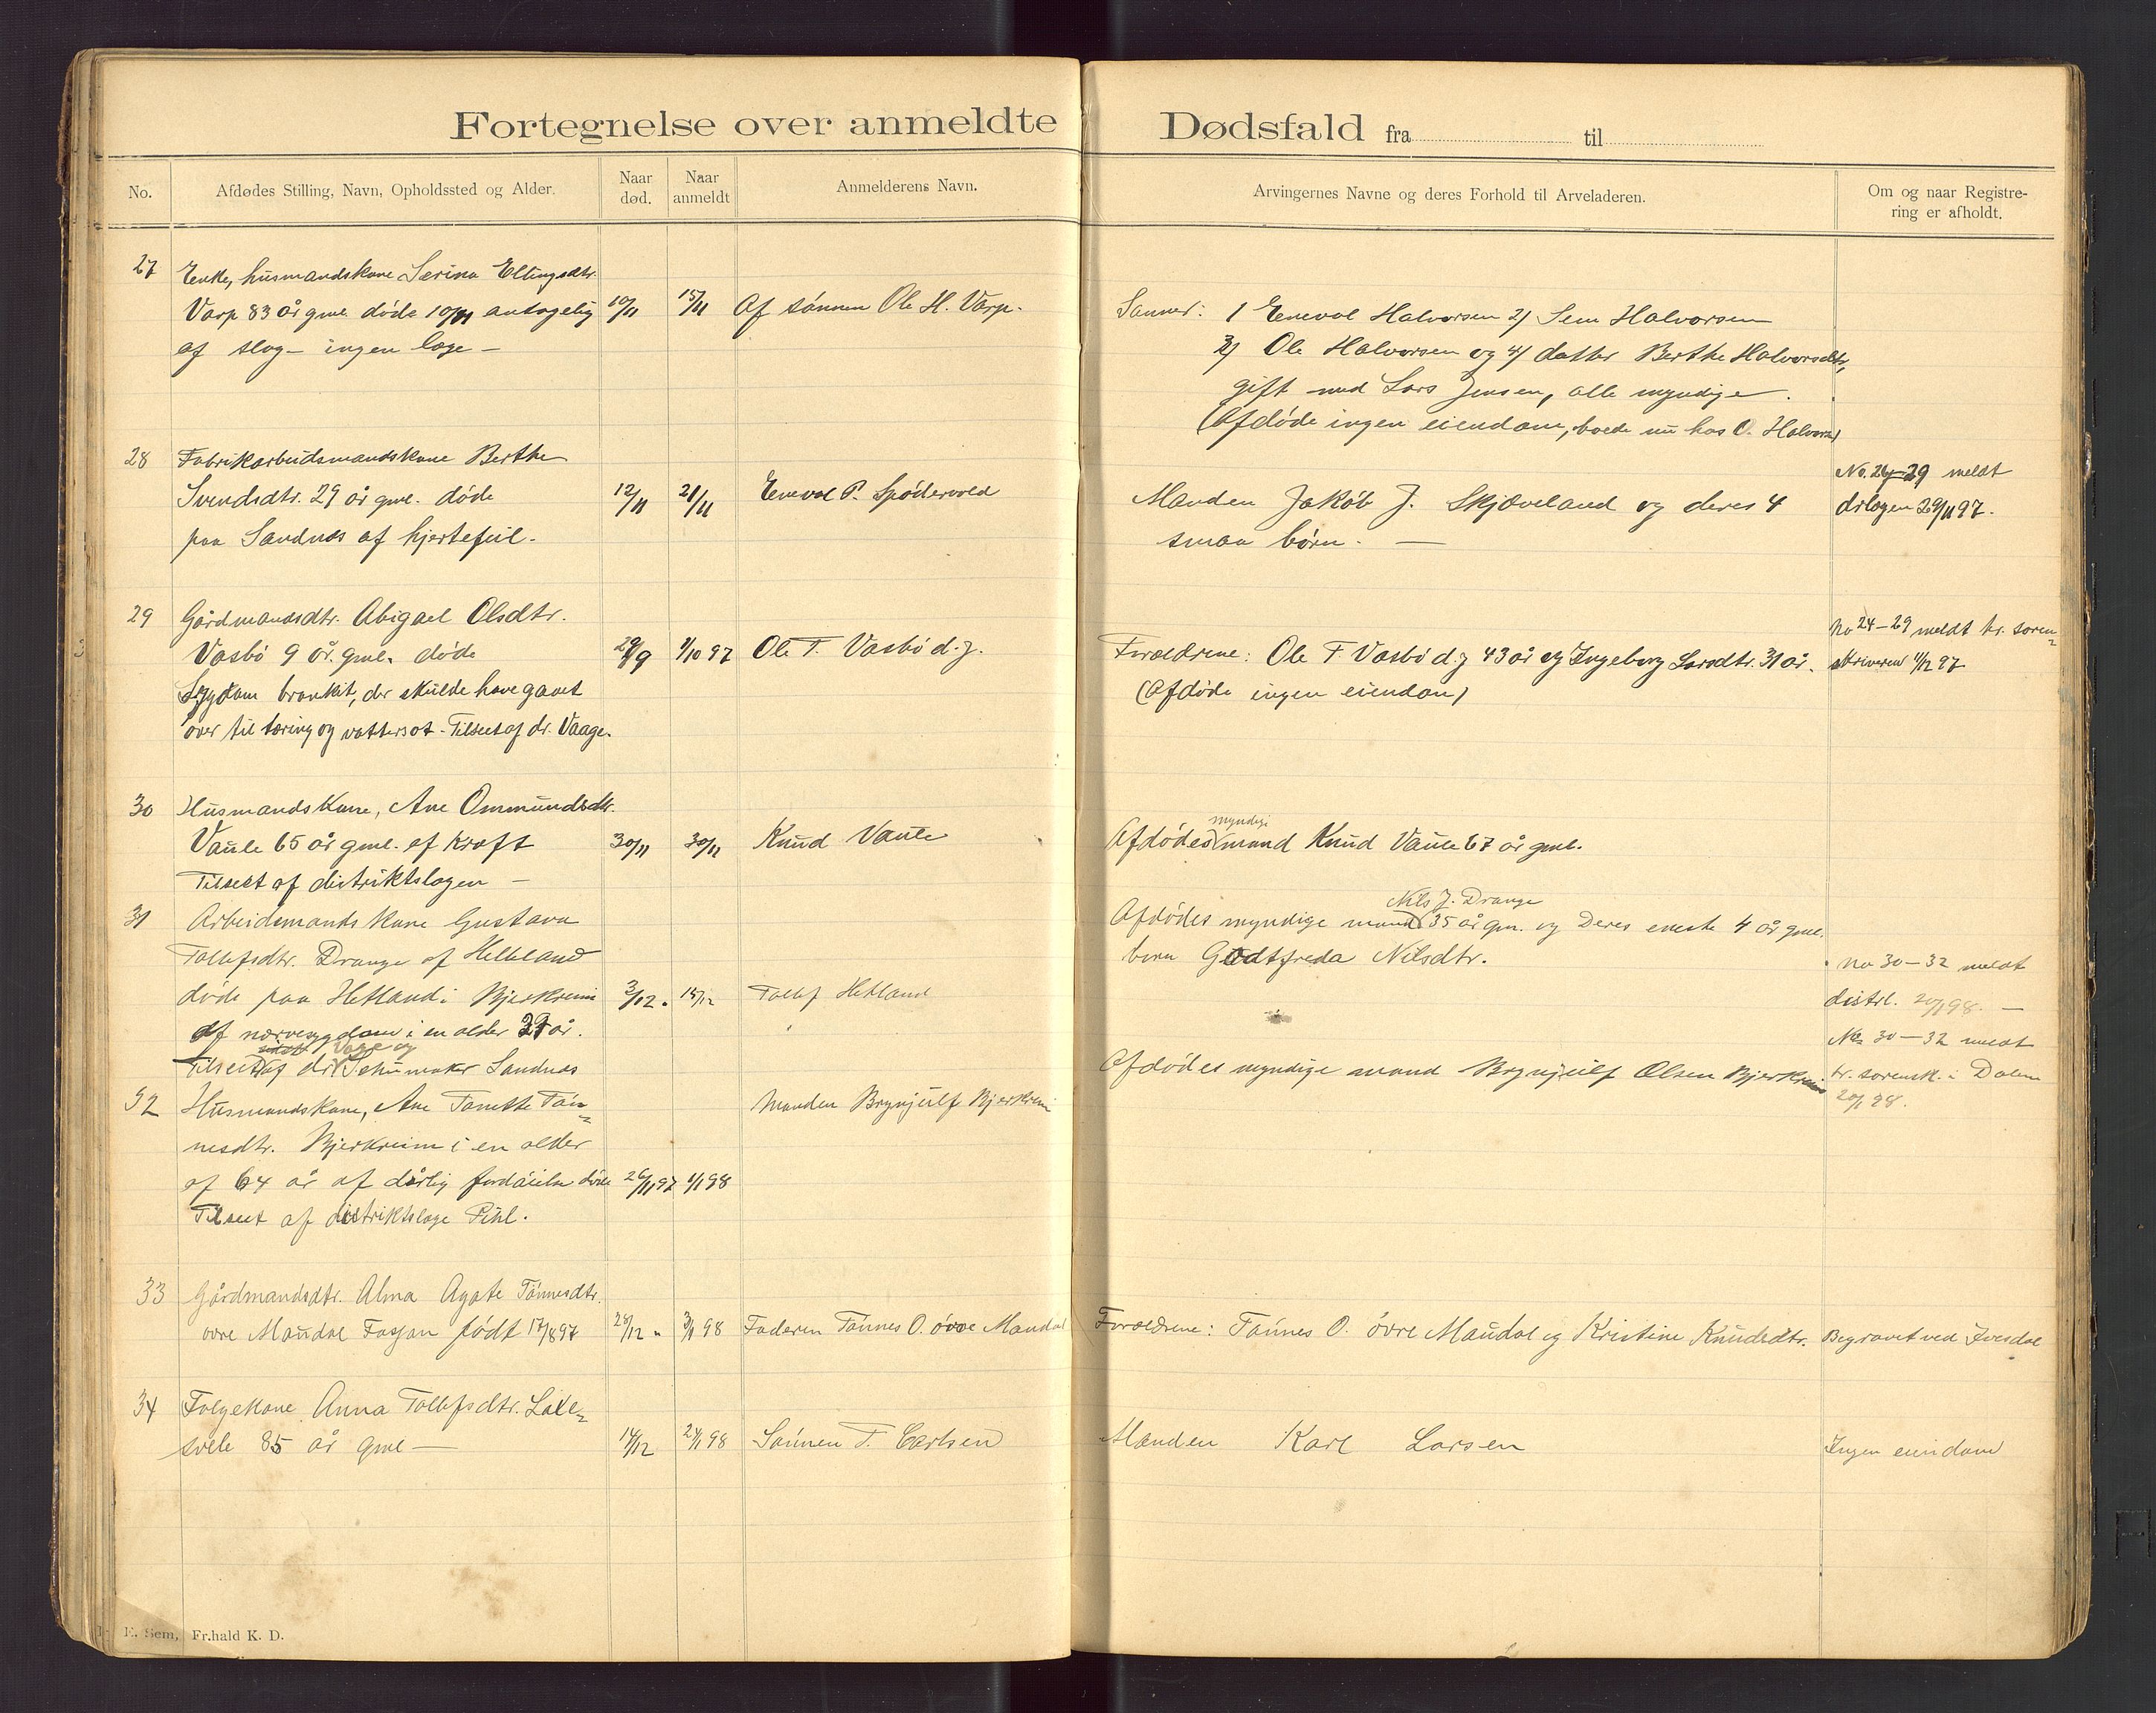 Fortegnelse over anmeldte Dødsfald fra til
No.
Afdødes Stilling, Navn, Opholdssted og Alder.
Naar død.
Naar anmeldt
Anmelderens Navn.
Arvingernes Navne og deres Forhold til Arveladeren.
Om og naar Registre-
ring er afholdt.
27
Enke, husmandskone Serina Ellingsdtr.
Varp 83 år gml. døde 10/11 antagelig
af slag - ingen læge -
10/11
15/11
Af sønnen Ole H. Varp.
Sønner: 1 Enevol Halvorsen 2) Sem Halvorsen
3) Ole Halvorsen og 4) datter Berthe Halvorsdtr,
gift med Lars Jensen, alle myndige.
(Afdøde ingen eiendom, boede nu hos O. Halvorsen)
28
Fabrikarbeidsmandskone Berthe
Svendsdtr. 29 år gml. døde
paa Sandnæs af hjertefeil.
12/11
21/11
Enevol P. Spødervold
Manden Jakób J. Skjæveland og deres 4
smaa børn. -
No. 26-29 meldt
drlægen 29/11 97.
29
Gårdmandsdtr. Abigael Olsdtr.
Vasbø 9 år. gml. døde
Sygdom bronkit, der skulde have gaaet
over til tæring og vattersot - Tilseet af dr. Vaage.
29/9
1/10 97
Ole T. Vasbø d.y.
Forældrene: Ole T. Vasbø d.y 43 år og Ingeborg Larsdtr. 31 år.
(Afdøde ingen eiendom)
No 24-29 meldt hr. soren=
skriveren 4/12 97
30
Husmandskone, Ane Ommundsdtr.
Vaule 65 år gml. af kræft
Tilseet af distriktslægen -
30/11
30/12
Knud Vaule
myndige
Afdødes mand Knud Vaule 67 år gml.
31
Arbeidsmandskone Gustava
Tollefsdtr. Drange af Helleland
døde paa Hetland i Bjerkreim
af nervesygdom i en alder 27 år.
Vaage og
Tilseet af dr Schumaker Sandnæs
3/12.
15/12
Tollef Hetland
Nils J. Drange
Afdødes myndige mand 35 år gm. og Deres eneste 4 år gml.
barn Godtfreda Nilsdtr.
No 30-32 meldt
distrl. 20/1 98. -
No 30-32 meldt
hr. sorensk. i Dalen
20/1 98.
32
Husmandskone, Ane Tonette Tøn=
nesdtr. Bjerkreim i en alder
af 64 år af dårlig fordøielse døde
Tilseet af distriktslæge Pihl.
26/11 97
1/1 98
Manden Brynjulf Bjerkreim
Afdødes myndige mand Brynjulf Olsen Bjerkreim
33
Gårdmandsdtr. Alma Agate Tønnesdtr.
øvre Maudal født 17/8 97
28/12 "
3/1 98
Faderen Tønnes O. øvre Maudal
Forældrene: Tønnes O. øvre Maudal og Kristine Knudsdtr.
Begravet ved Ivesdal
34
Følgekone Anna Tollefsdtr. Laxe=
svele 85 år gml -
14/12
24/1 98
Sønnen T. Carlsen
Manden Karl Larsen
Ingen eiendom
E. Sem, Fr.hald K. D.